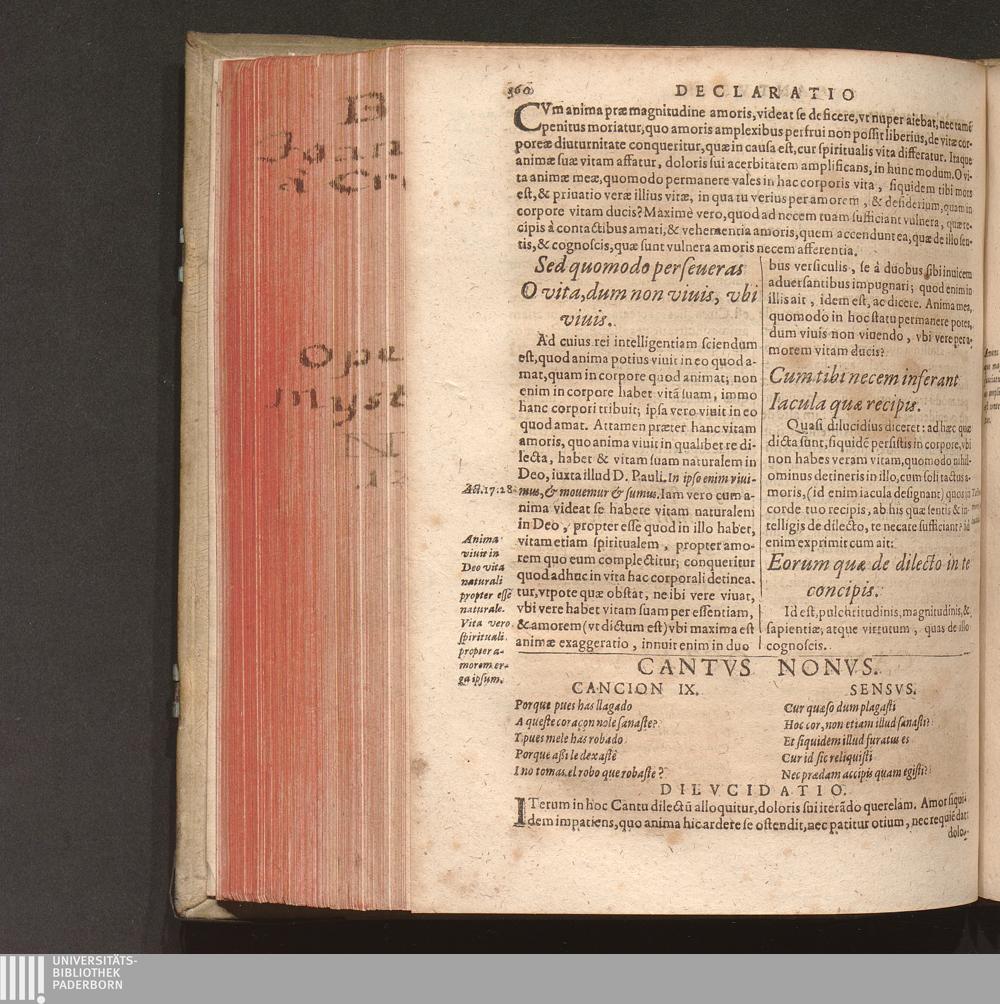 360
DECLARATIO
CVm anima præ magnitudine amoris, videat se deficere, vt nuper aiebat, nec tamẽ
penitus moriatur, quo amoris amplexibus perfrui non possit liberius, de vitæ cor-
poreæ diuturnitate conqueritur, quæ in causa est, cur spiritualis vita differatur. Itaque
animæ suæ vitam affatur, doloris sui acerbitatem amplificans, in hunc modum. O vi-
ta animæ meæ, quomodo permanere vales in hac corporis vita, siquidem tibi mors
est, & priuatio veræ illius vitæ, in qua tu verius per amorem, & desiderium, quam in
corpore vitam ducis? Maximè vero, quod ad necem tuam sufficiant vulnera, quæ re-
cipis à contactibus amati, & vehementia amoris, quem accendunt ea, quæ de illo sen-
tis, & cognoscis, quæ sunt vulnera amoris necem afferentia.
Sed quomodo perseueras
O vita, dum non viuis, vbi
viuis.
Ad cuius rei intelligentiam sciendum
est, quod anima potius viuit in eo quod a-
mat, quam in corpore quod animat; non
enim in corpore habet vitã suam, immo
hanc corpori tribuit; ipsa vero viuit in eo
quod amat. Attamen præter hanc vitam
amoris, quo anima viuit in qualibet re di-
lecta, habet & vitam suam naturalem in
Deo, iuxta illud D. Pauli. In ipso enim viui-
mus, & mouemur & sumus. Iam vero cum a-
nima videat se habere vitam naturalem
in Deo, propter esse quod in illo habet,
vitam etiam spiritualem, propter amo-
rem quo eum complectitur; conqueritur
quod adhuc in vita hac corporali detinea-
tur, vtpote quæ obstat, ne ibi vere viuat,
vbi vere habet vitam suam per essentiam,
& amorem (vt dictum est) vbi maxima est
animæ exaggeratio, innuit enim in duo
Act. 17. 28.
Anima
viuit in
Deo vita
naturali
propter essẽ
naturale.
Vita vero
spirituali
propter a-
morem er-
ga ipsum.
bus versiculis, se à duobus sibi inuicem
aduersantibus impugnari; quod enim in
illis ait, idem est, ac dicere. Anima mea,
quomodo in hoc statu permanere potes,
dum viuis non viuendo, vbi vere per a-
morem vitam ducis?
Cum tibi necem inferant
Iacula quæ recipis.
Quasi dilucidius diceret: ad hæc quæ
dicta sunt, siquidẽ persistis in corpore, vbi
non habes veram vitam, quomodo nihil-
ominus detineris in illo, cum soli tactus a-
moris, (id enim iacula designant) quos in
corde tuo recipis, ab his quæ sentis & in-
telligis de dilecto, te necate sufficiant? Id
enim exprimit cum ait:
Eorum quæ de dilecto in te
concipis.
Id est, pulchritudinis, magnitudinis, &
sapientiæ, atque virtutum, quas de illo
cognoscis.
CANTVS NONVS.
CANCION IX.
Porque pues has llagado
A queste coraçon nole sanaste?
Y pues mele has robado
Porque aßi le dexastẽ
I no tomas el robo que robaste?
SENSVS.
Cur quæso dum plagasti
Hoc cor, non etiam illud sanasti?
Et siquidem illud furatus es
Cur id sic reliquisti
Nec prædam accipis quam egisti?
DILVCIDATIO.
ITerum in hoc Cantu dilectũ alloquitur, doloris sui iterãdo querelam. Amor siqui-
dem impatiens, quo anima hic ardere se ostendit, nec patitur otium, nec requiẽ dat
dolo-
UNIVERSITÄTS-
BIBLIOTHEK
PADERBORN